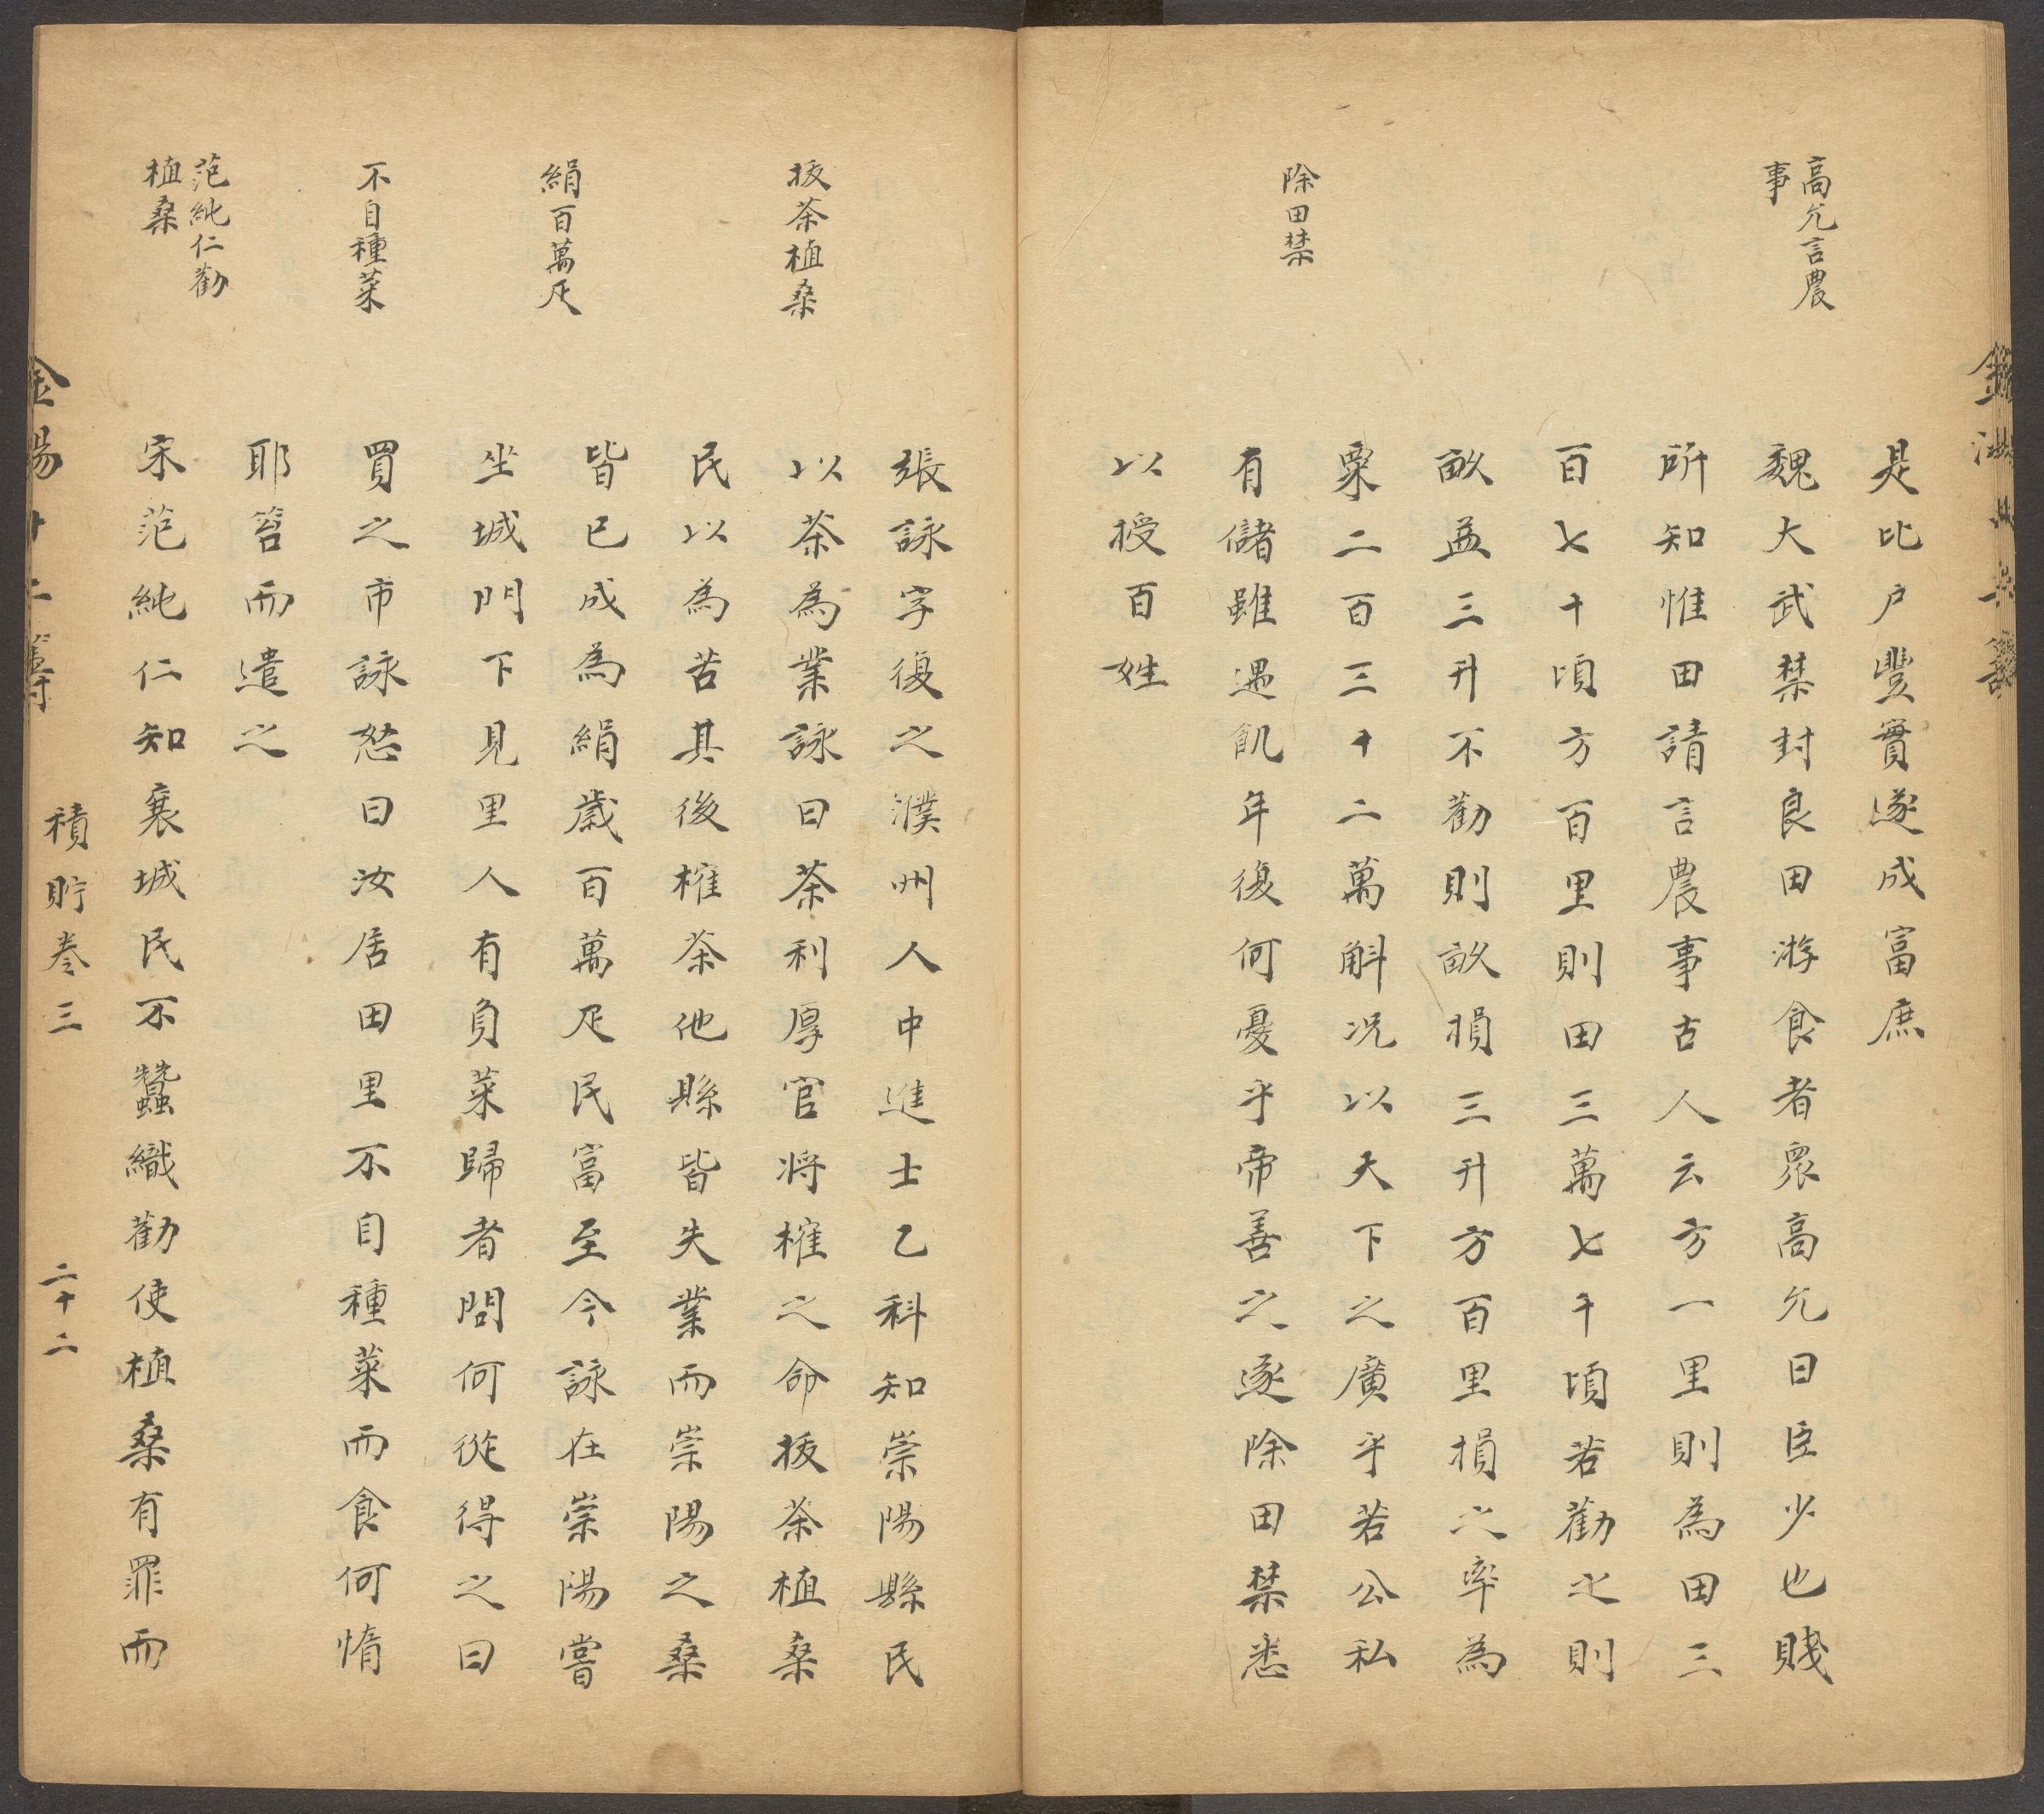 高允言農
事
除田禁
是比户豐實遂成富庶
魏大武禁封良田游食者衆高允曰臣少也賤
所知惟田請言農事古人云方一里則為田三
百七十頃方百里則田三萬七千頃若勸之則
畝益三升不勸則畝損三升方百里損之率為
粟二百三十二萬斛况以天下之廣乎若公私
有儲雖遇飢年復何憂乎帝善之遂除田禁悉
以授百姓
拔茶植桑
絹百萬疋
不自種菜
范純仁勸
植桑
張詠字復之濮州人中進士乙科知崇陽縣民
以茶為業詠曰茶利厚官将榷之命拔茶植桑
民以為苦其後榷茶他縣皆失業而崇陽之桑
皆已成為絹歳百萬疋民富至今詠在崇陽嘗
坐城門下見里人有負菜歸者問何從得之曰
買之市詠怒曰汝居田里不自種菜而食何惰
耶笞而遣之
宋范純仁知襄城民不蠶織勸使植桑有罪而
積貯卷三
二十二